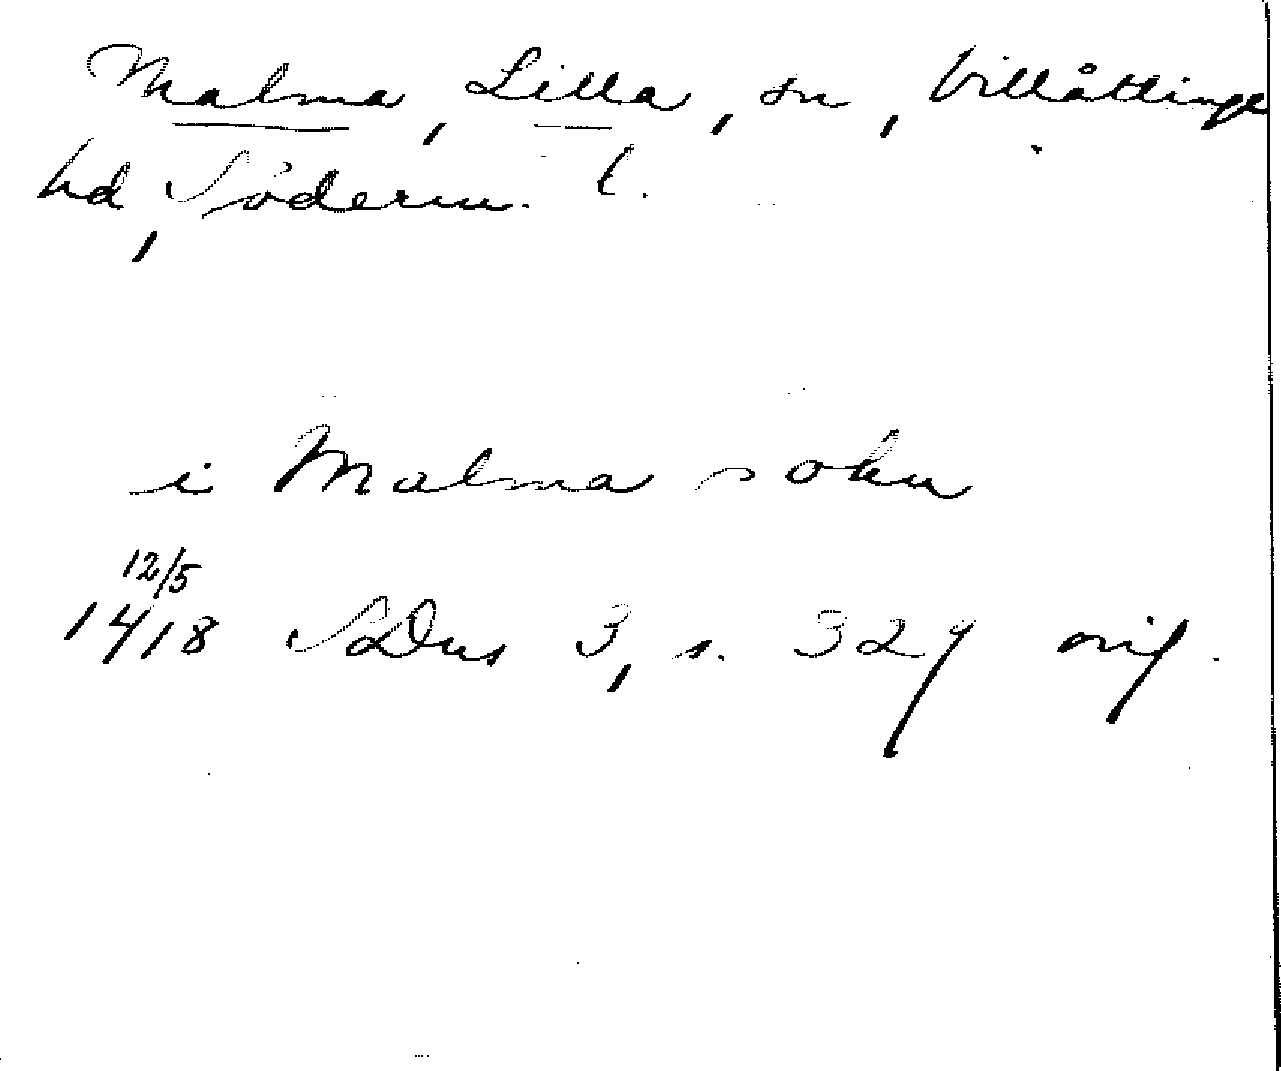 Malma, Lilla, sn, Villåttinge
hd, Söderm. l.
i Malma sokn
12/5
1418 SDns 3, s. 329 orig.